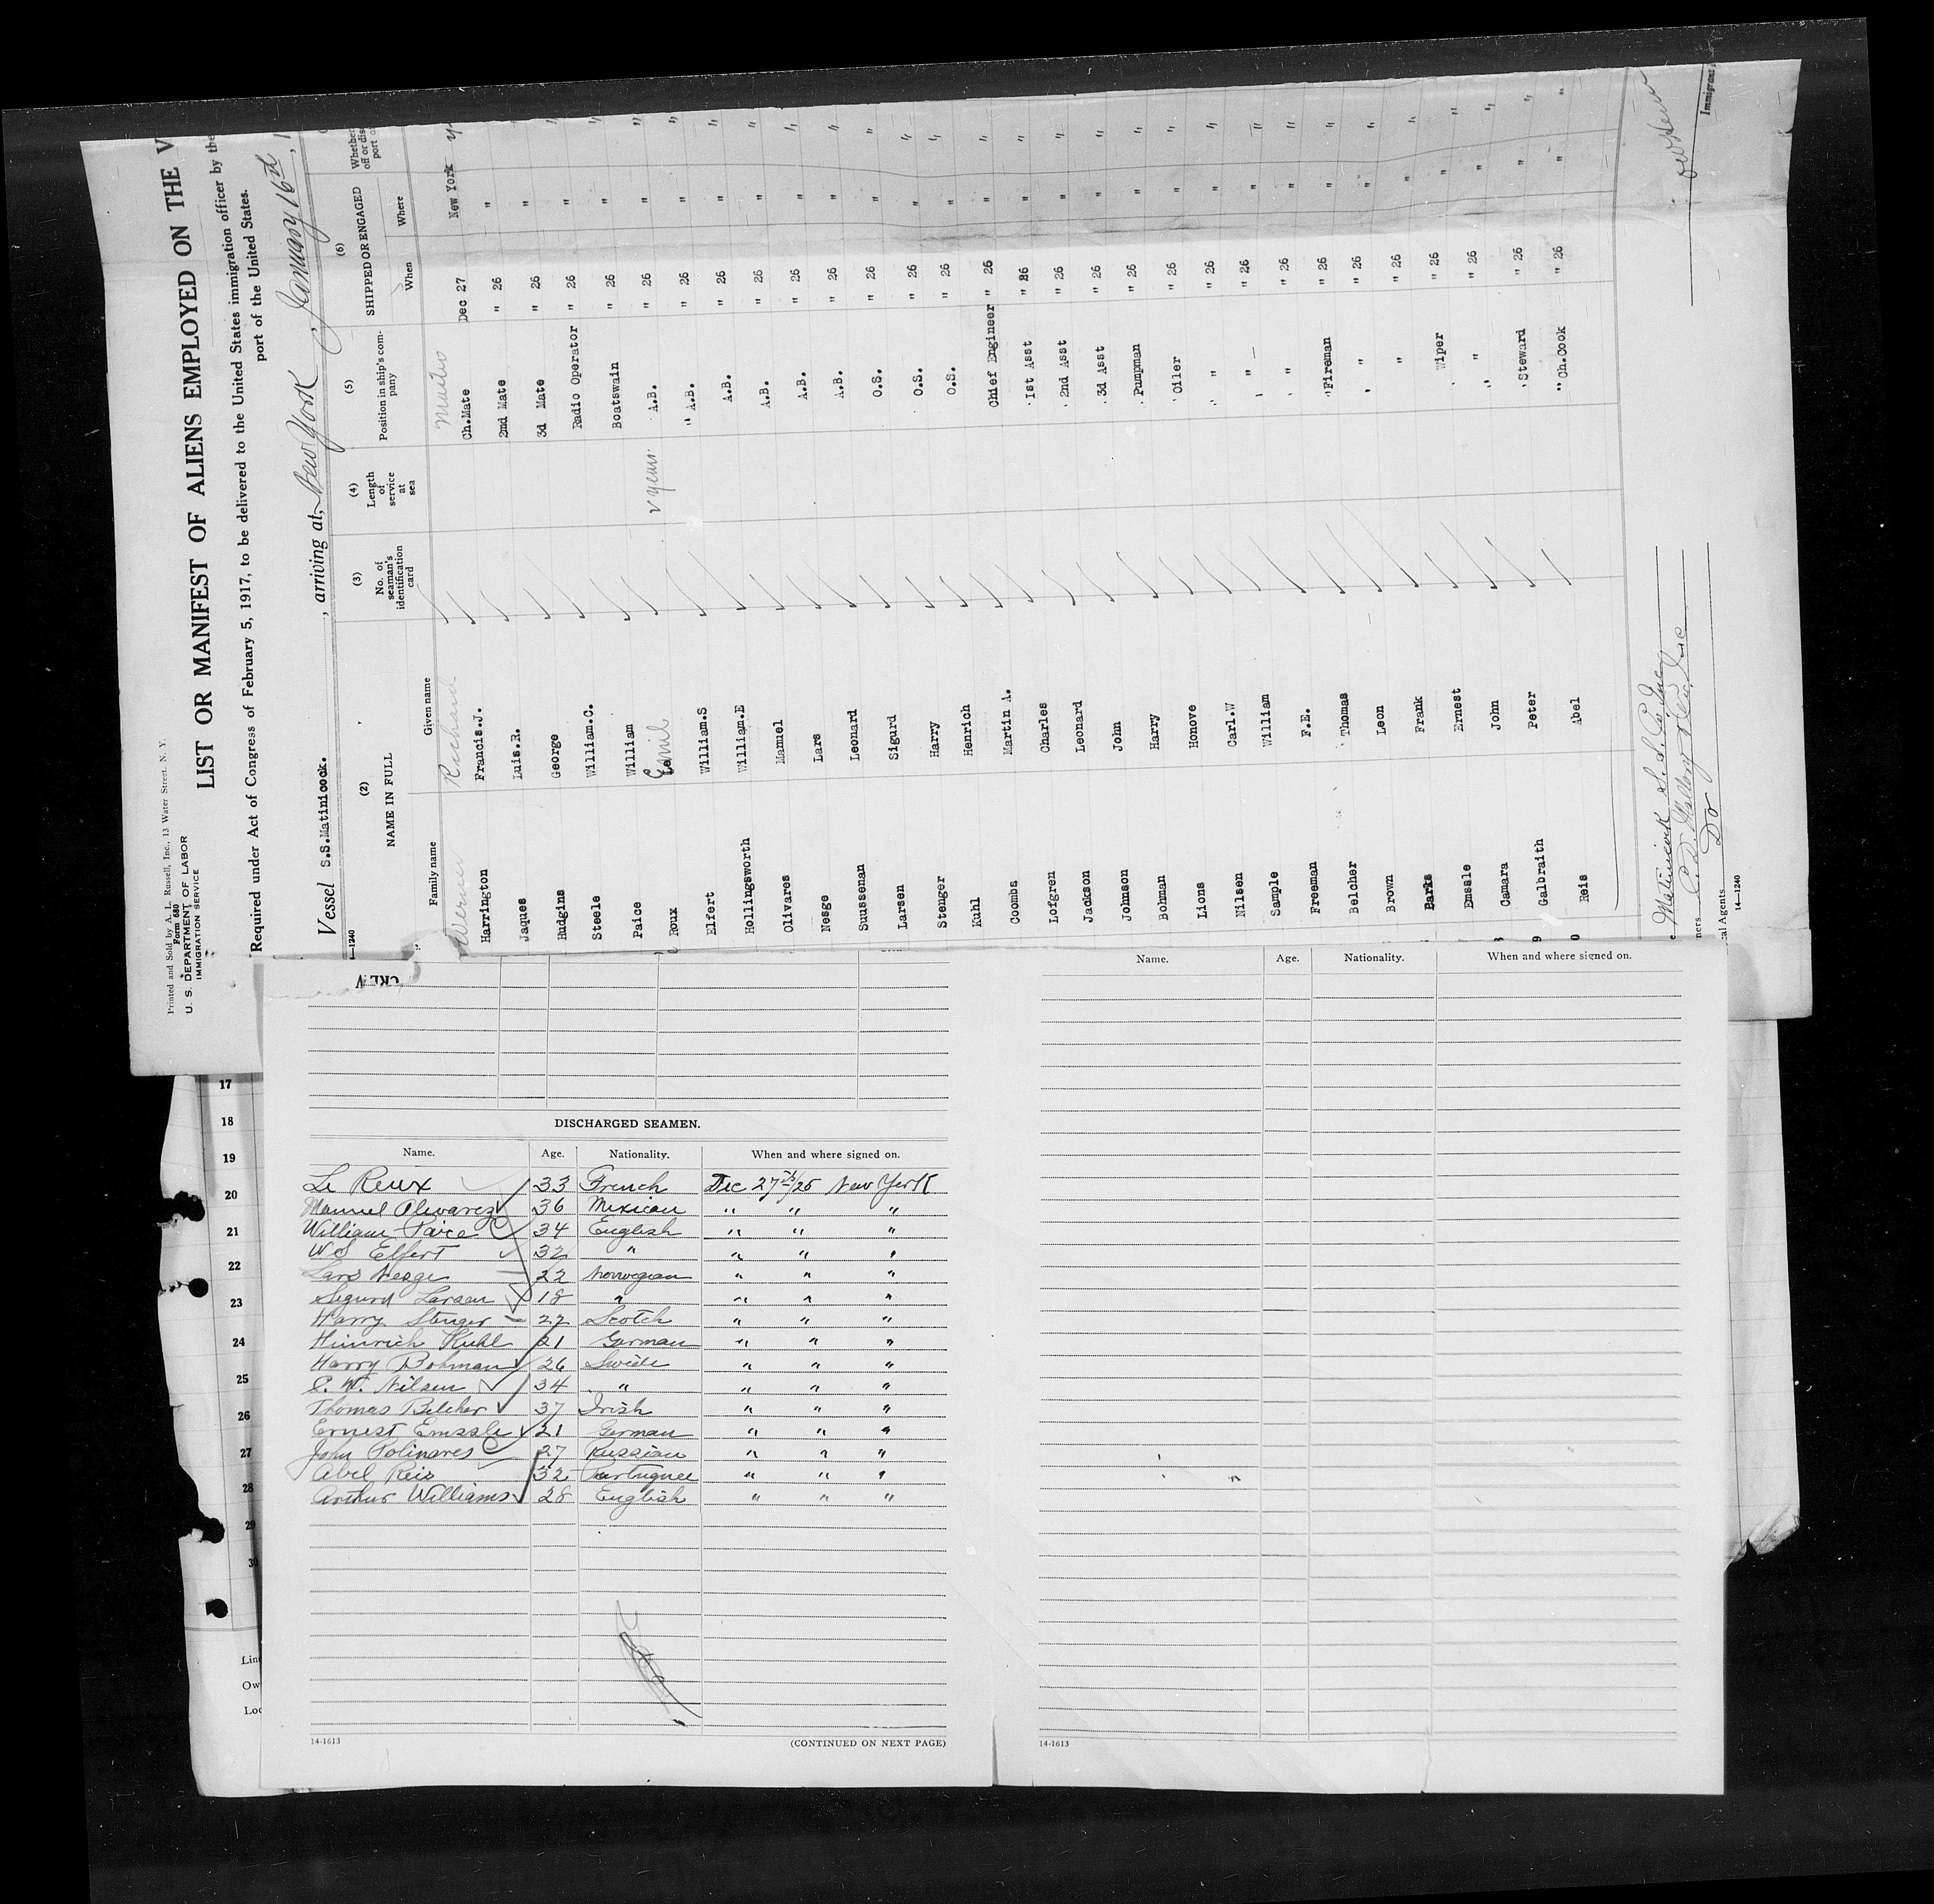 Printed and Sold by A. L. Russell, Inc., 13 Water Street, N. Y.
Form 680
U. S. DEPARTMENT OF LABOR
IMMIGRATION SERVICE
LIST OR MANIFEST OF ALIENS EMPLOYED ON THE V
Required under Act of Congress of February 5, 1917, to be delivered to the United States immigration officer by the
port of the United States.
Vessel S.S.Matinicock. , arriving at, New York , January 16th ,
—1240
(2) (3) (4) (5) (6)
NAME IN FULL No. of seaman's identification card Length of service at sea Position in ship's company SHIPPED OR ENGAGED Whether
off or dis
port o
Family name Given name When Where
Werner Richard
Harrington Francis.J. Ch.Mate Dec 27 New York
Jaques Luis.R. 2nd Mate " 26 " "
Hudgins George 3d Mate " 26 " "
Steele William.C. Radio Operator " 26 " "
Paice William Boatswain " 26 " "
Roux Emil v years A.B. " 26 " "
Elfert William.S " A.B. " 26 " "
Hollingsworth William.E A.B. " 26 " "
Olivares Manuel A.B. " 26 " "
Nesge Lars A.B. " 26 " "
Suussenan Leonard A.B. " 26 " "
Larsen Sigurd O.S. " 26 " "
Stenger Harry O.S. " 26 " "
Kuhl Henrich O.S. " 26 " "
Coombs Martin A. Chief Engineer " 26 " "
Lofgren Charles 1st Asst " 26 " "
Jackson Leonard 2nd Asst " 26 " "
Johnson John 3d Asst " 26 " "
Bohman Harry Pumpman " 26 " "
Lions Honove Oiler " 26 " "
Nilsen Carl.W " " 26 " "
Sample William " " 26 " "
Freeman F.E. " " 26 " "
Belcher Thomas Fireman " 26 " "
Brown Leon " " 26 " "
Barks Frank " " 26 " "
Emssle Ernest Wiper " 26 " "
Camara John " " 26 " "
Galbraith Peter Steward " 26 " "
Reis Abel Ch.Cook " 26 " "
Matinicock S.S. Co Inc
ners C.D. Mallory & Co., Inc
cal Agents Do
14—1240
Immigrant
CREW
DISCHARGED SEAMEN.
Name. Age. Nationality. When and where signed on.
Le Roux 33 French Dec 27th/25 New York
Manuel Olivarez 36 Mexican " " "
William Paice 34 English " " "
W S Elfert 32 " " " "
Lars Nesge 22 Norwegian " " "
Sigurd Larsen 18 " " " "
Harry Stenger 22 Scotch " " "
Heinrich Kuhl 21 German " " "
Harry Bohman 26 Swede " " "
C. W. Nilsen 34 " " " "
Thomas Belcher 37 Irish " " "
Ernest Emssle 21 German " " "
John Polinares 27 Russian " " "
Abel Reis 32 Portuguee " " "
Arthur Williams 28 English " " "
14-1613 (CONTINUED ON NEXT PAGE)
Name. Age. Nationality. When and where signed on.
14-1613
17
18
19
20
21
22
23
24
25
26
27
28
29
30
Line
Ow
Loc